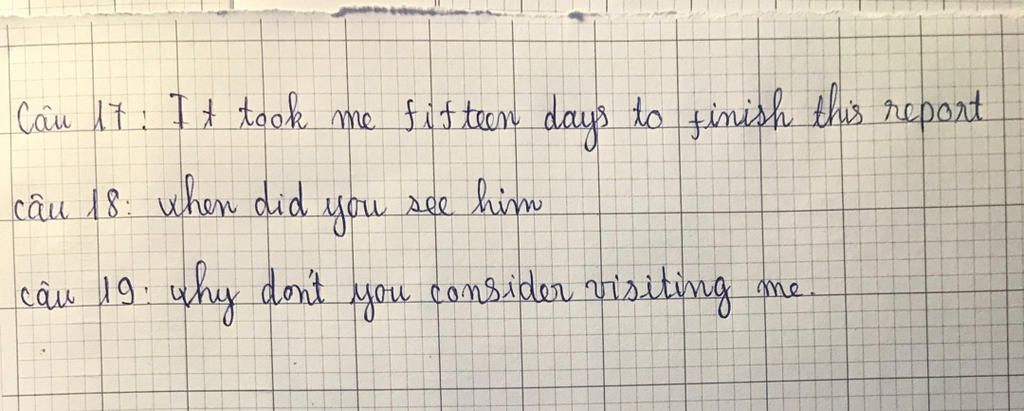 Câu 17: It took me fifteen days to finish this report
câu 18: when did you see him
câu 19: why don't you consider visiting me.